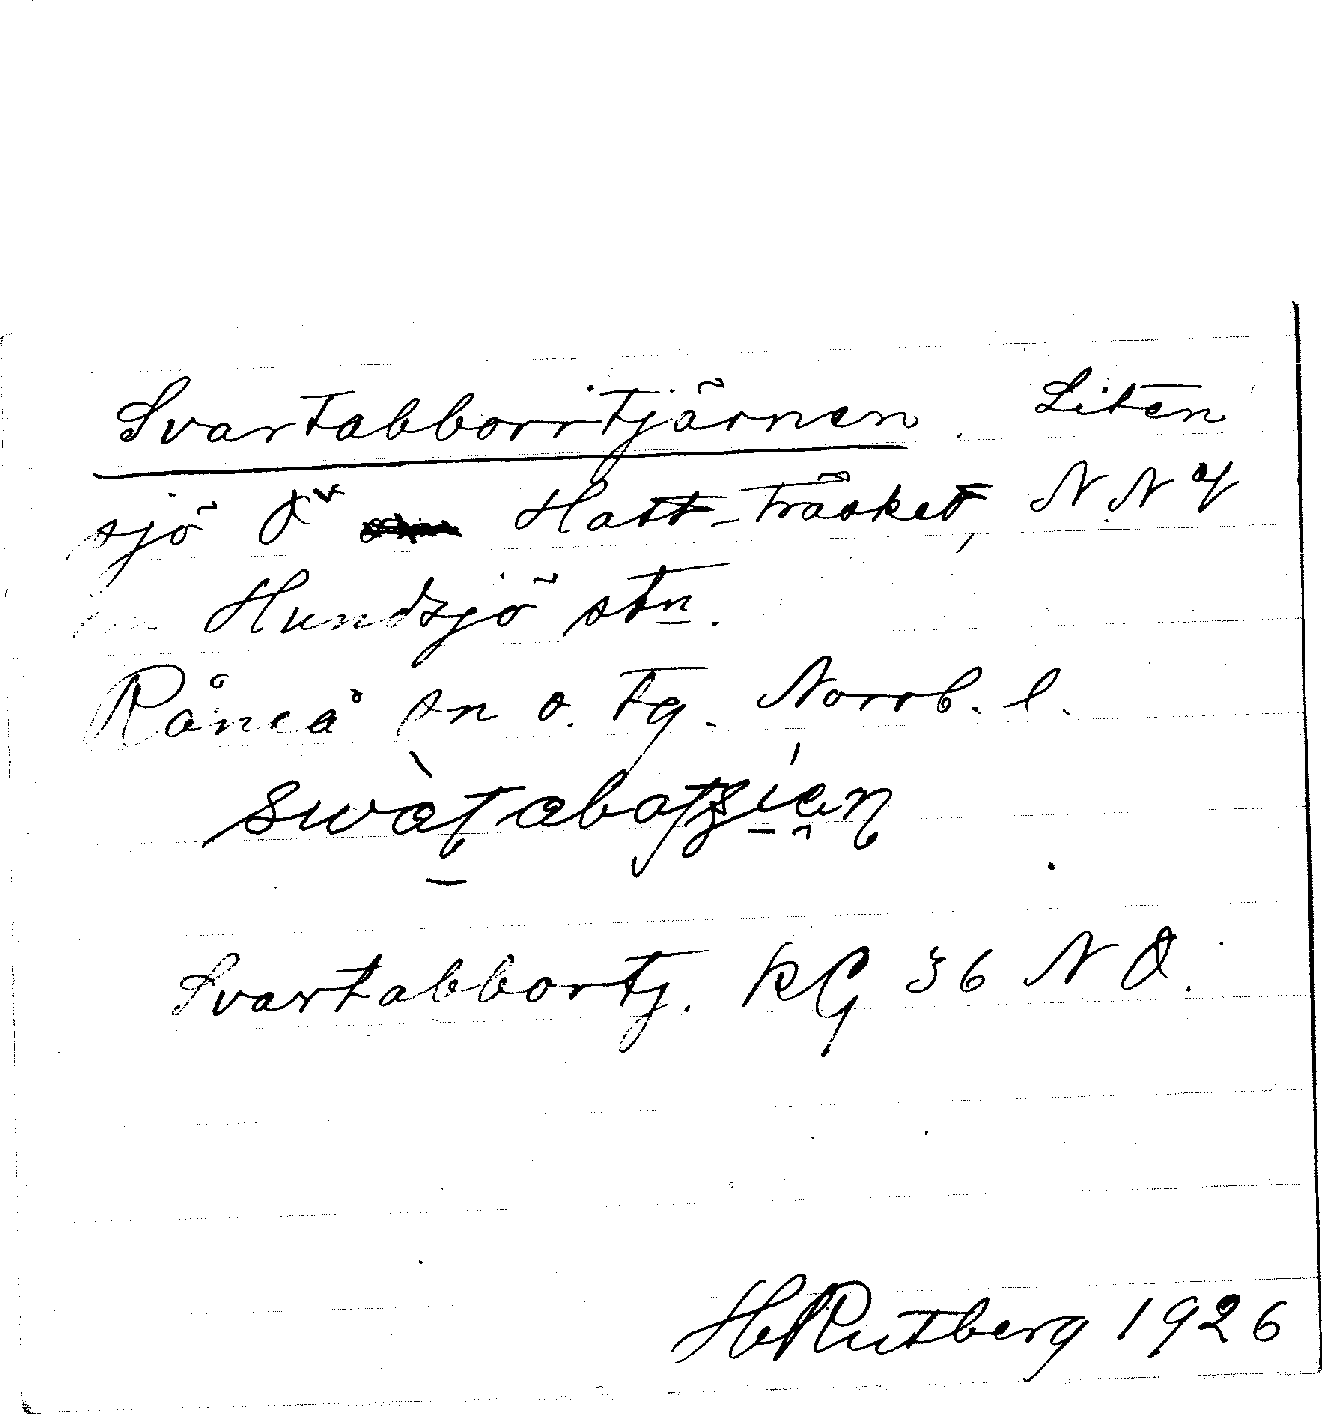 Svartabborrtjärnen. Liten
sjö Ö Hatt-träsket, NNV
om Hundsjö stn.
Råneå sn o. tg. Norrb. l.
Svartabbortj. RG 36 NO.
HRutberg 1926